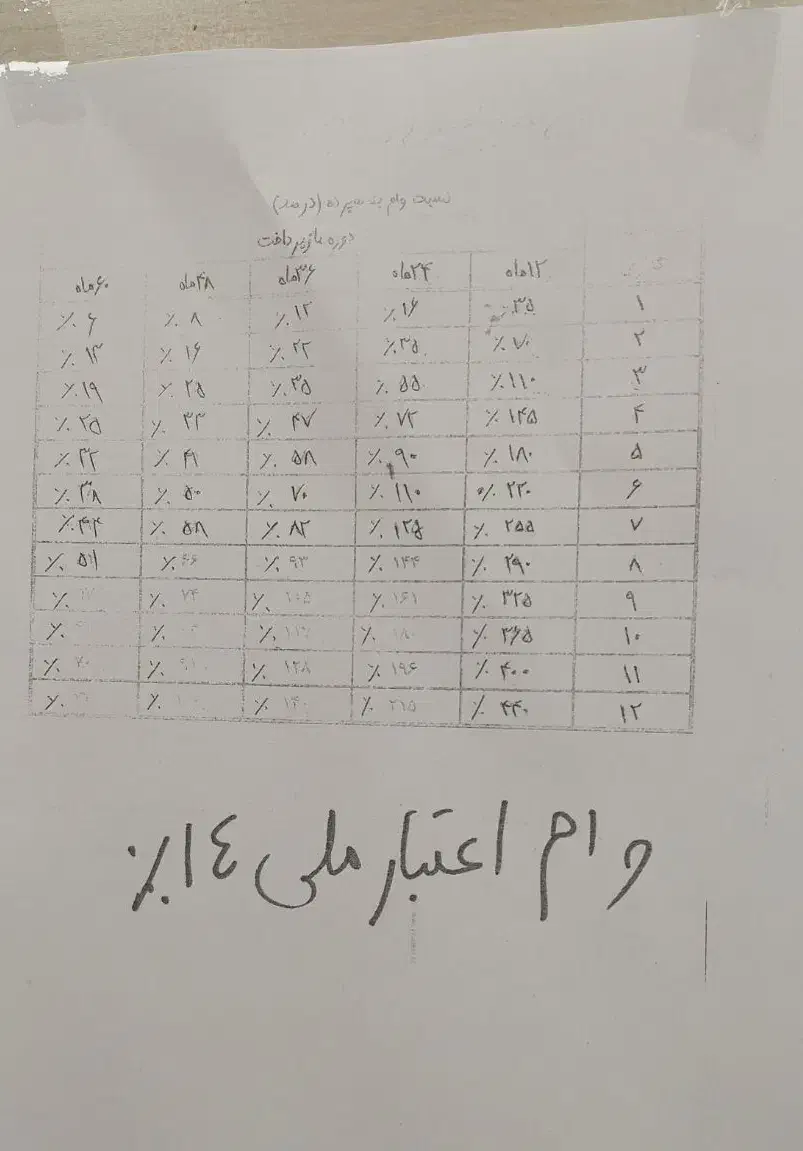 نسبت وام به سپرده (درصد)
دوره بازپرداخت
۱۲ماه ۲۴ماه ۳۶ماه ۴۸ماه ۶۰ماه
۱ ۳۵٪ ۱۶٪ ۱۲٪ ۸٪ ۶٪
۲ ۷۰٪ ۳۵٪ ۲۲٪ ۱۶٪ ۱۳٪
۳ ۱۱۰٪ ۵۵٪ ۳۵٪ ۲۵٪ ۱۹٪
۴ ۱۴۵٪ ۷۲٪ ۴۷٪ ۳۳٪ ۲۵٪
۵ ۱۸۰٪ ۹۰٪ ۵۸٪ ۴۱٪ ۳۲٪
۶ ۲۲۰٪ ۱۱۰٪ ۷۰٪ ۵۰٪ ۳۸٪
۷ ۲۵۵٪ ۱۲۵٪ ۸۲٪ ۵۸٪ ۴۴٪
۸ ۲۹۰٪ ۱۴۴٪ ۹۳٪ ۶۶٪ ۵۱٪
۹ ۳۲۵٪ ۱۶۱٪ ۱۰۵٪ ۷۴٪ ٪
۱۰ ۳۶۵٪ ۱۸۰٪ ۱۱۶٪ ٪ ٪
۱۱ ۴۰۰٪ ۱۹۶٪ ۱۲۸٪ ٪ ۷۰٪
۱۲ ۴۴۰٪ ۲۱۵٪ ۱۴۰٪ ٪ ٪
وام اعتبار ملی ۱٤٪